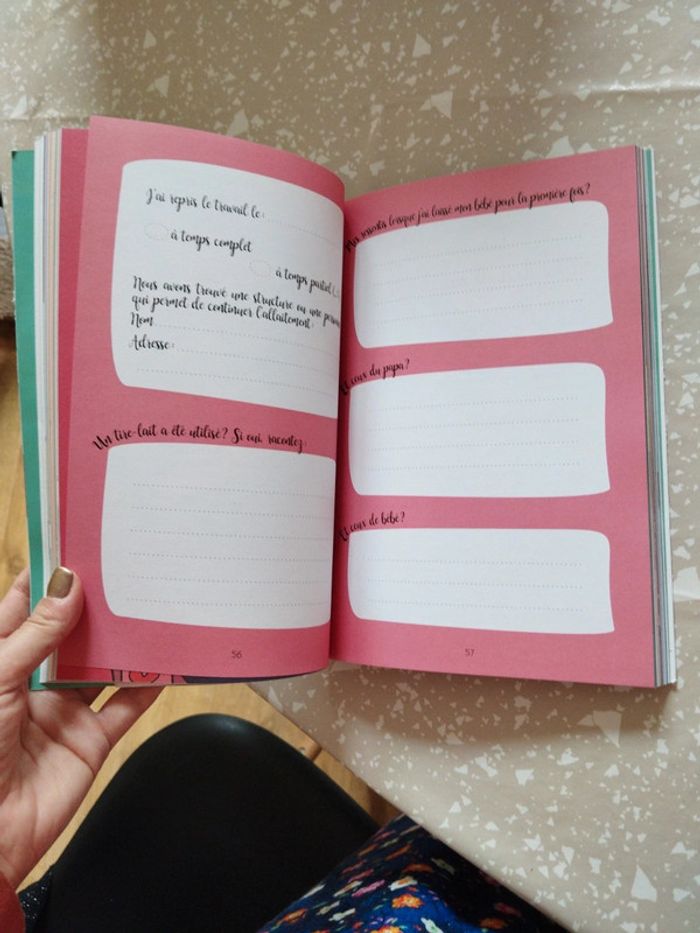 J'ai repris le travail le:
à temps complet
à temps partiel
Nous avons trouvé une structure ou une
qui permet de continuer l'allaitement:
Nom
Adresse:
Un tire-lait a été utilisé? Si oui, racontez:
56
Mes ressentis lorsque j'ai laissé mon bébé pour la première fois?
Et ceux du papa?
Et ceux de bébé?
57